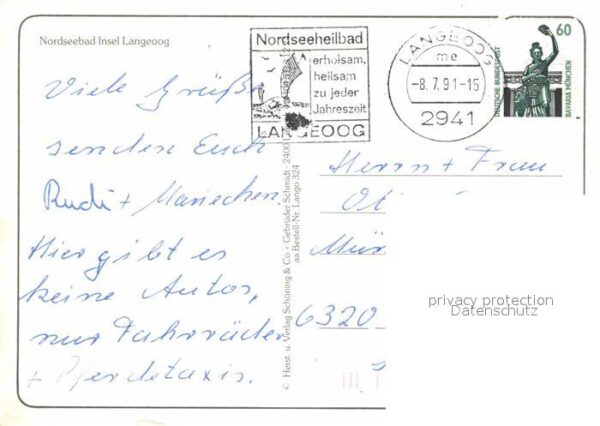 Nordseebad Insel Langeoog
Nordseeheilbad
erholsam,
heilsam
zu jeder
Jahreszeit
LANGEOOG
LANGEOOG
me
-8.7.91-15
2941
60
DEUTSCHE BUNDESPOST
BAVARIA MÜNCHEN
Viele Grüße
senden Euch
Rudi + Mariechen.
Hier gibt es
keine Autos,
nur Fahrräder
+ Pferdetaxis.
© Herst. u. Verlag Schöning & Co + Gebrüder Schmidt · 2400
aa Bestell-Nr. Lango 324
Herrn + Frau
6320
privacy protection
Datenschutz